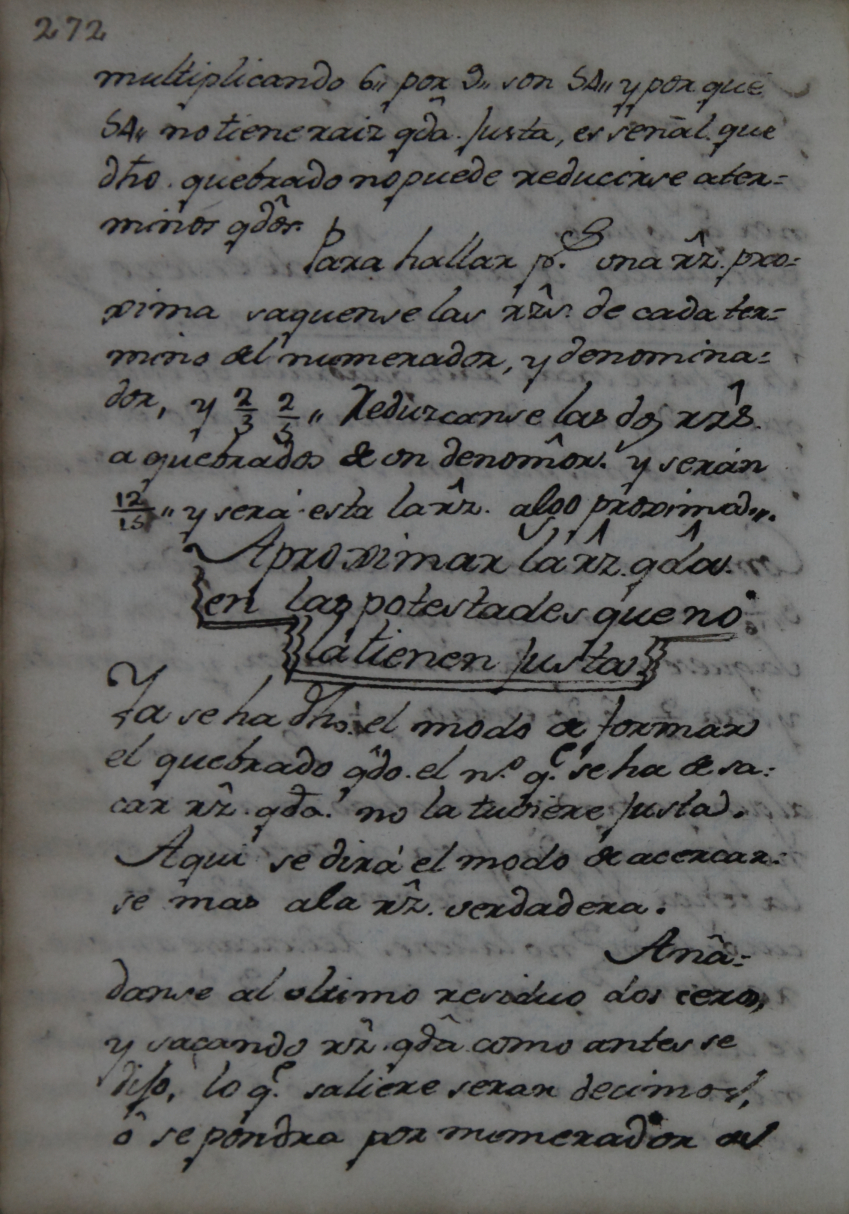 272
multiplicando 6,, por 9,, son 54,, y porque
54,, no tiene raiz qda. justa, es señal que
dho. quebrado no puede reducirse a ter=
minos qdos.
Para hallar p.s una rz. pro=
xima saquense las rzs. de cada ter=
mino del numerador, y denomina=
dor, y 2/3 2/5,, Reduzcanse las dos rzs.
a quebrados de un denomor. y serán
12/15,, y será esta la rz. algo proxima,,.
Aproximar la rz. qda.
en las potestades que no
la tienen justa
Ya se ha dho. el modo de formar
el quebrado qdo. el n.º q.e se ha de sa=
car rz. qda. no la tubiere justa.
Aqui se dirá el modo de acercar=
se mas a la rz. verdadera.
Aña=
danse al ultimo residuo dos ceros,
y sacando rz. qda como antes se
dijo, lo q.e saliere seran decimos,
ô se pondra por numerador del